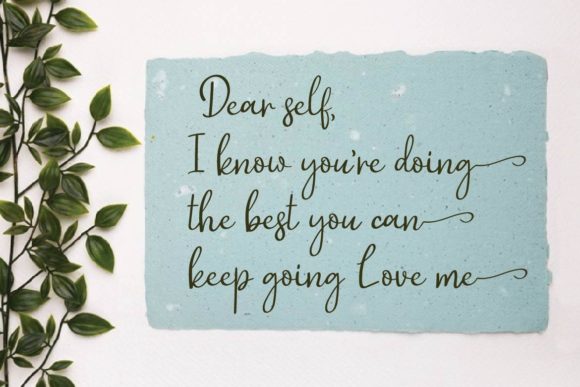 Dear self,
I know you're doing
the best you can
keep going Love me